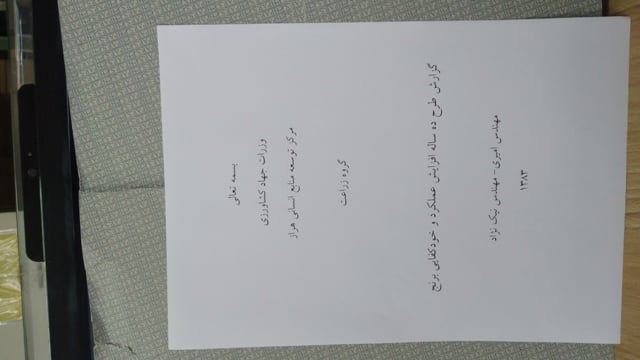 بسمه تعالی
وزارت جهاد کشاورزی
مرکز توسعه منابع انسانی هراز
گروه زراعت
گزارش طرح ده ساله افزایش عملکرد و خودکفایی برنج
مهندس امیری - مهندس نیک نژاد
۱۳۸۳